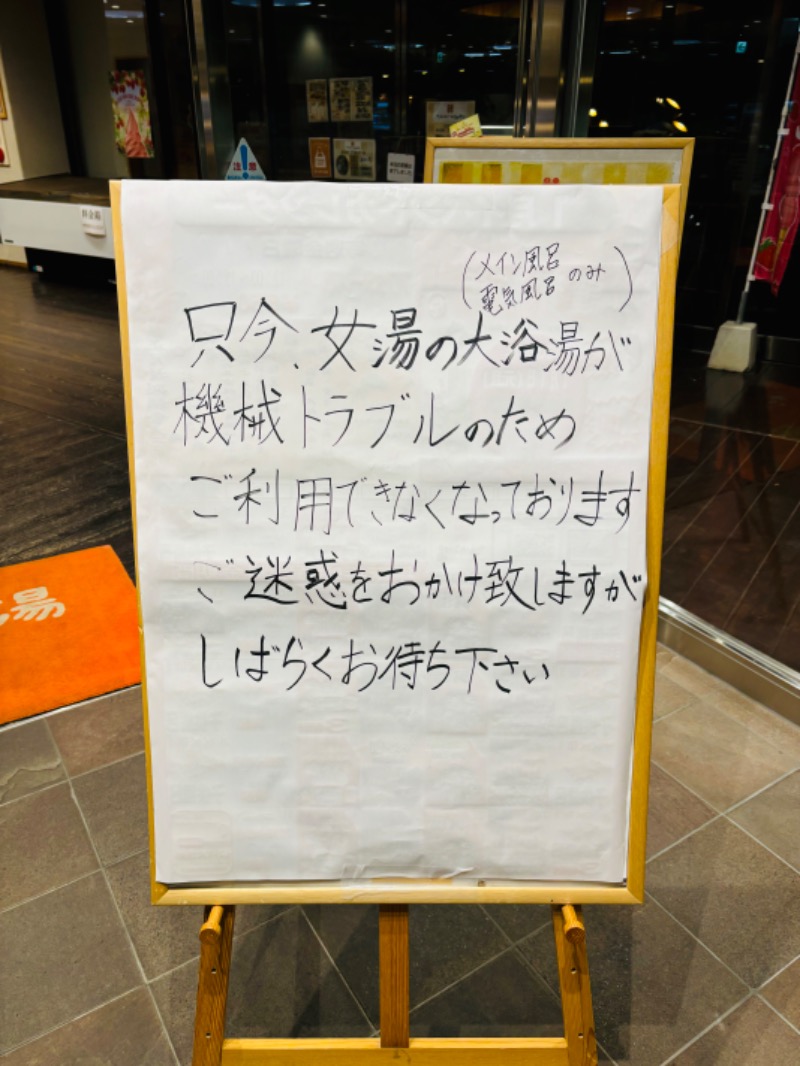 注意
(メイン風呂
電気風呂 のみ)
只今、女湯の大浴湯が
機械トラブルのため
ご利用できなくなっております
ご迷惑をおかけ致しますが
しばらくお待ち下さい
湯